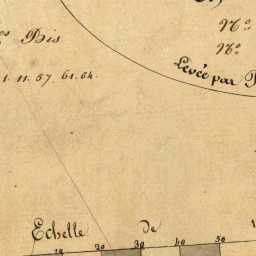 N°
Bis
N°
Levée par
1. 11. 57. 61. 64.
Echelle de
10 20 30 40 50